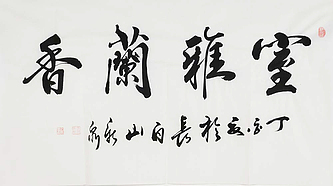 室雅蘭香
丁亥夏於長白山